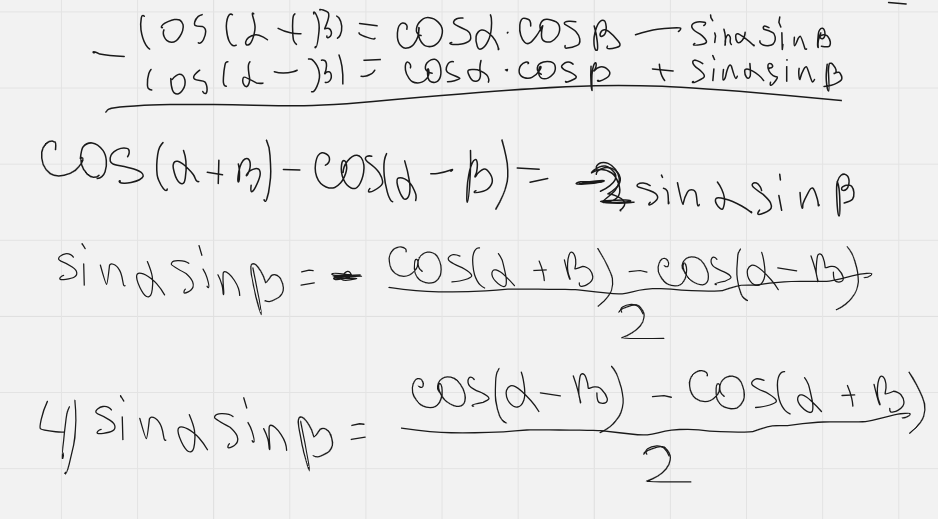 cos(α+β) = cosα·cosβ − sinαsinβ
− cos(α−β) = cosα·cosβ + sinαsinβ
cos(α+β) − cos(α−β) = −2 sinαsinβ
sinαsinβ = − (cos(α+β) − cos(α−β)) / 2
4) sinαsinβ = (cos(α−β) − cos(α+β)) / 2